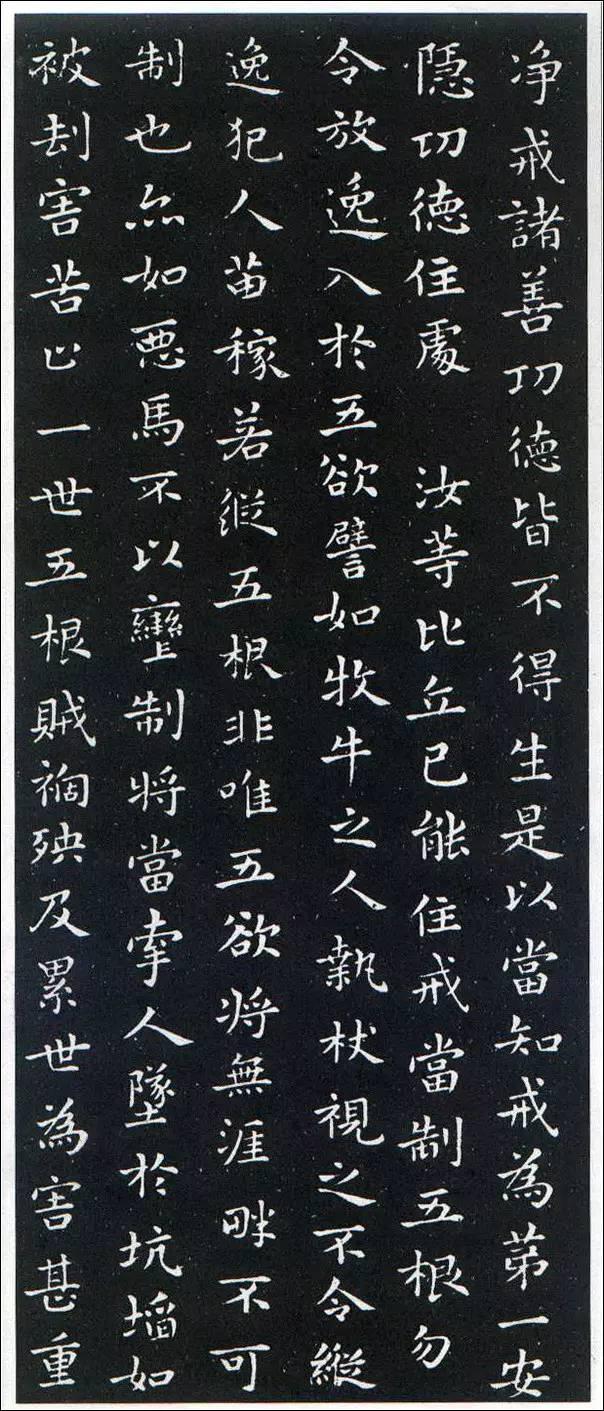 净戒諸善功德皆不得生是以當知戒為苐一安
隱功德住處 汝等比丘已能住戒當制五根勿
令放逸入於五欲譬如牧牛之人執杖視之不令縱
逸犯人苗稼若縱五根非唯五欲將無涯畔不可
制也亦如惡馬不以轡制將當牽人墜於坑埳如
被刦害苦止一世五根賊禍殃及累世為害甚重